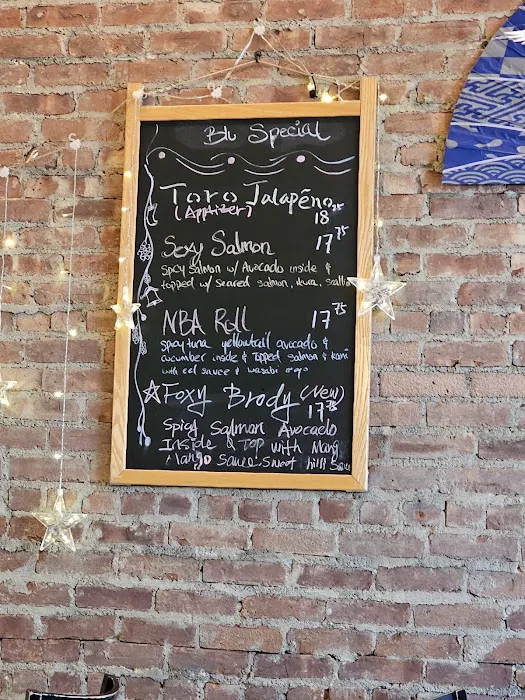 Blu Special
Toro Jalapēno
(Appitizer) 18 25
Sexy Salmon 17 75
Spicy Salmon w/ Avocado inside &
topped w/ Seared salmon, ikura, scallio
NBA Roll 17 75
spicy tuna yellowtail avocado &
cucumber inside & topped salmon & kani
with eel sauce & wasabi mayo
☆Foxy Brody (New)
17 75
Spicy Salmon Avocado
Inside & TOP with Mang
Mango Sauce. Sweet